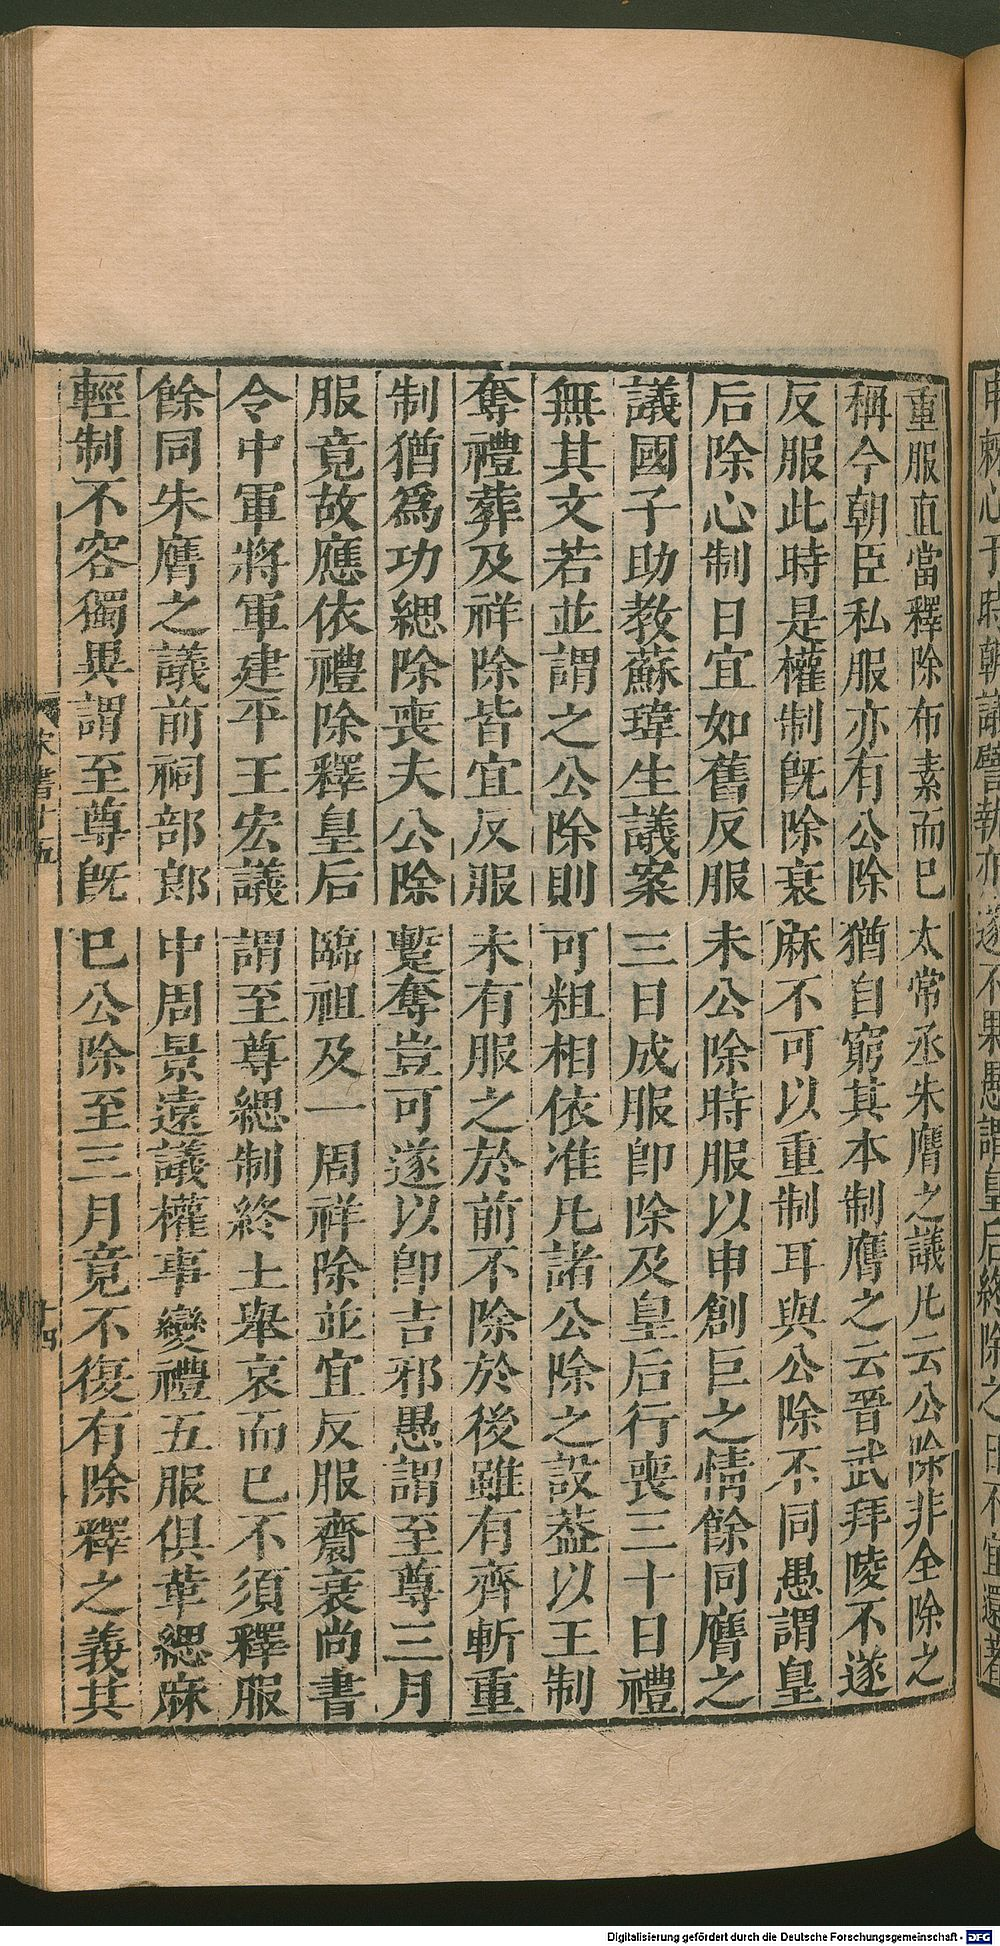 重服直當釋除布素而已太常丞朱膺之議凡云公除非全除之
稱今朝臣私服亦有公除猶自窮其本制膺之云晉武拜陵不遂
反服此時是權制既除衰麻不可以重制耳與公除不同愚謂皇
后除心制日宜如舊反服未公除時服以申創巨之情餘同膺之
議國子助教蘇瑋生議案三日成服卽除及皇后行喪三十日禮
無其文若並謂之公除則可粗相依准凡諸公除之設葢以王制
奪禮葬及祥除皆宜反服未有服之於前不除於後雖有齊斬重
制猶爲功緦除喪夫公除蹔奪豈可遂以卽吉邪愚謂至尊三月
服竟故應依禮除釋皇后臨祖及一周祥除並宜反服齋衰尚書
令中軍將軍建平王宏議謂至尊緦制終止舉哀而已不須釋服
餘同朱膺之議前祠部郎中周景遠議權事變禮五服俱革緦麻
輕制不容獨異謂至尊既已公除至三月竟不復有除釋之義其
宋書十五
十四
Digitalisierung gefördert durch die Deutsche Forschungsgemeinschaft - DFG